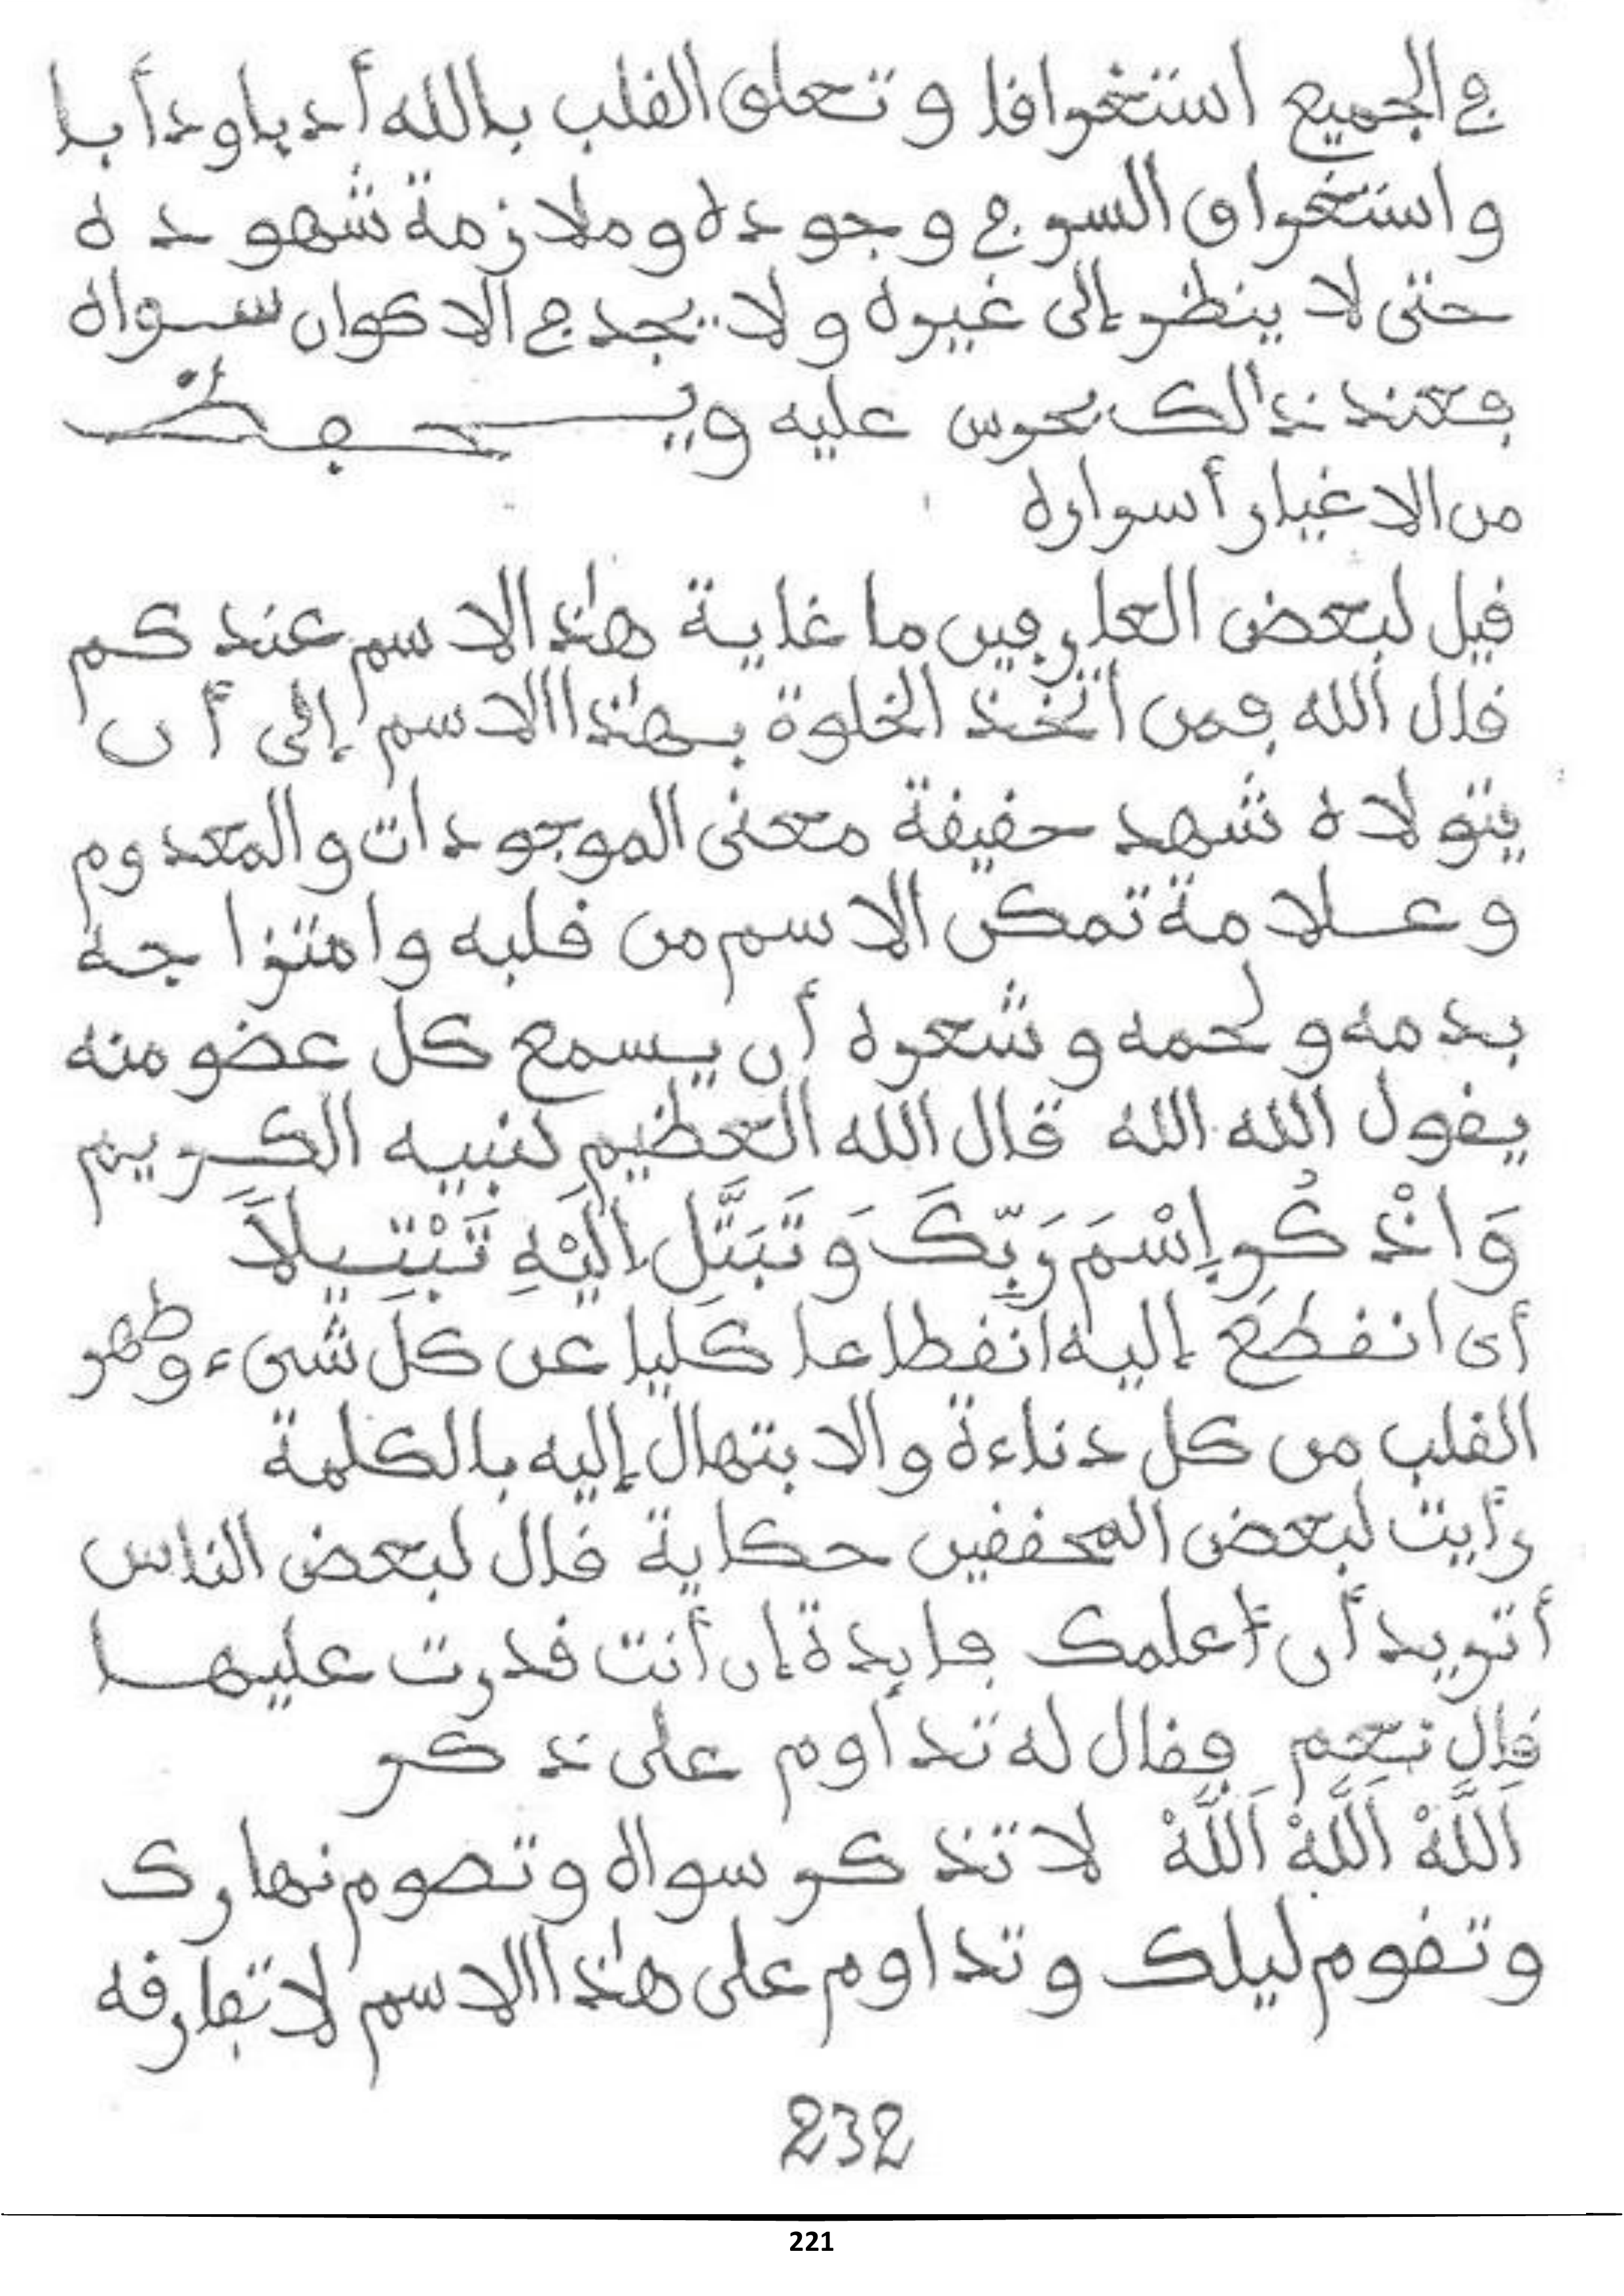 في الجميع استغراقا وتعلق القلب بالله أدبا ودأبا
واستغراق السر في وجوده وملازمة شهوده
حتى لا ينظر إلى غيره ولا يجد في الاكوان سواه
فعند ذالك يحرس عليه ويحفظ
من الاغيار أسراره
قيل لبعض العارفين ما غاية هٰذا الاسم عندكم
قال الله فمن اتخذ الخلوة بهٰذا الاسم إلى أن
يتولاه شهد حقيقة معنى الموجودات والمعدوم
وعلامة تمكن الاسم من قلبه وامتزاجه
بدمه ولحمه وشعره أن يسمع كل عضو منه
يقول الله الله قال الله العظيم لنبيه الكريم
وَاذْكُرِ إِسْمَ رَبِّكَ وَتَبَتَّلِ الَيْهِ تَبْتِيلاً
أى انقطع إليه انقطاعا كليا عن كل شىء وطهر
القلب من كل دناءة والابتهال إليه بالكلمة
رأيت لبعض المحققين حكاية قال لبعض الناس
أتريد أن أعلمك فايدة إن أنت قدرت عليها
قال نعم فقال له تداوم على ذكر
اَللَّهْ اَللَّهْ اَللَّهْ لا تذكر سواه وتصوم نهارك
وتقوم ليلك وتداوم على هٰذا الاسم لا تفارقه
232
221